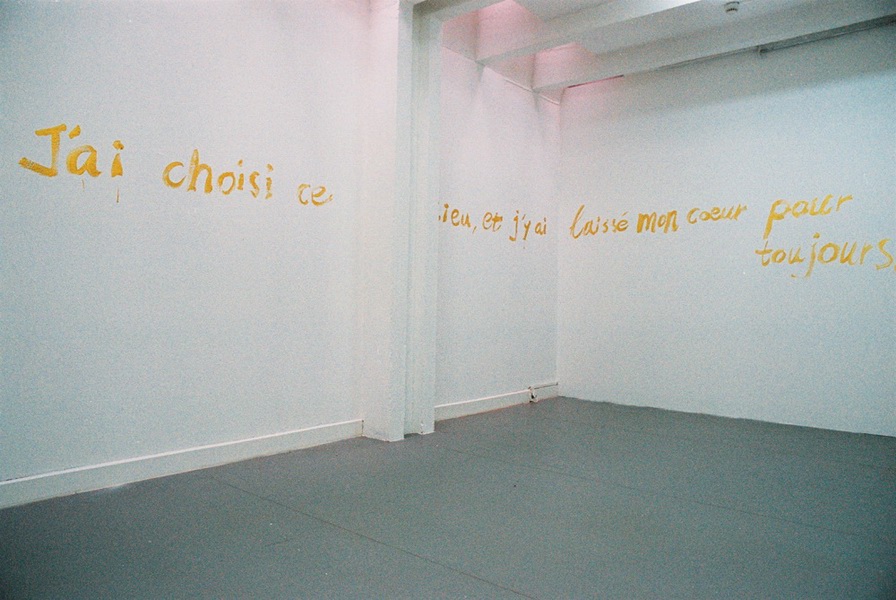 J'ai choisi ce lieu, et j'y ai laissé mon coeur pour
toujours